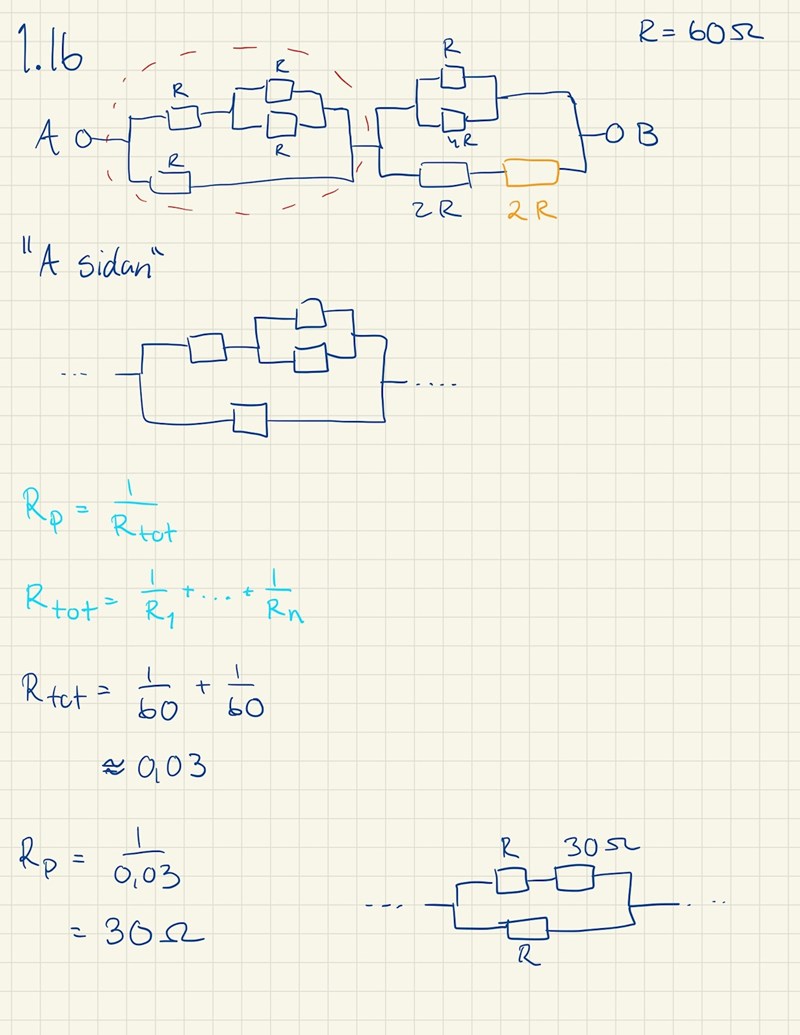 1.16
R = 60Ω
R
R
R
R
A
R
R
4R
B
2R
2R
"A sidan"
... ....
Rp = 1/Rtot
Rtot = 1/R1 + ... + 1/Rn
Rtot = 1/60 + 1/60
≈ 0,03
Rp = 1/0,03
= 30Ω
R 30Ω
... ...
R